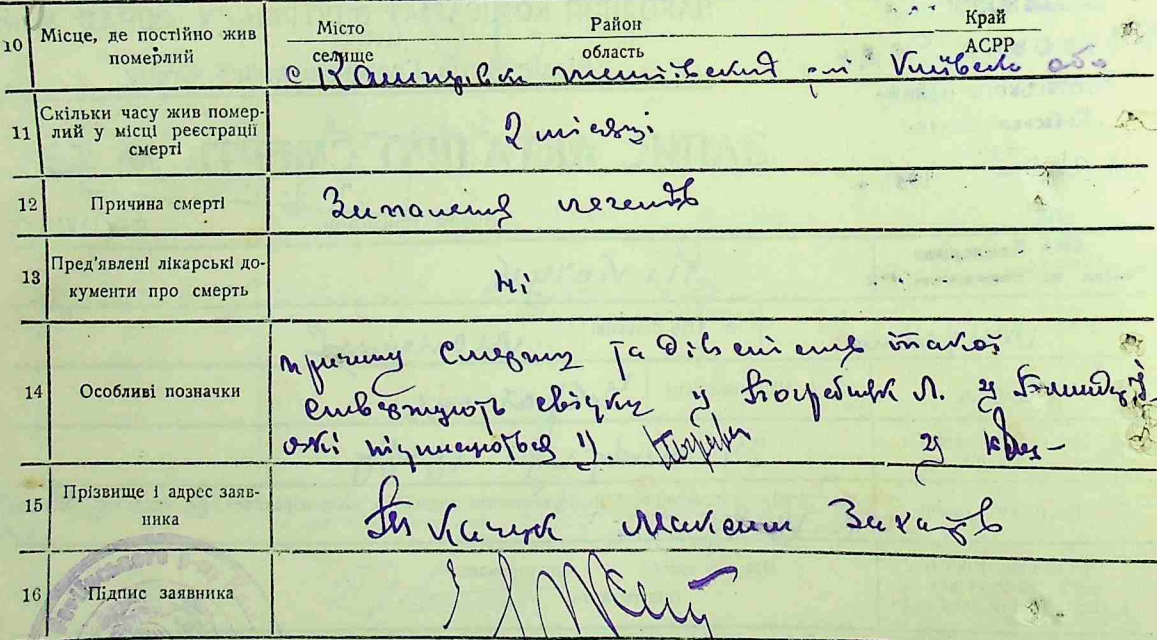 10 Місце, де постійно жив померлий
Місто селище Район область Край АСРР
с Кашперівка тетіївский Київско обл
11 Скільки часу жив померлий у місці реєстрації смерті
2 місяці
12 Причина смерті
Запаленя легенів
13 Пред'явлені лікарські документи про смерть
ні
14 Особливі позначки
причину смерти та дівсніснь такої
ствержують свідки 1) Погребицк Л. 2)
які підписуються 1). 2)
15 Прізвище і адрес заявника
Ткачук Максим Захарів
16 Підпис заявника